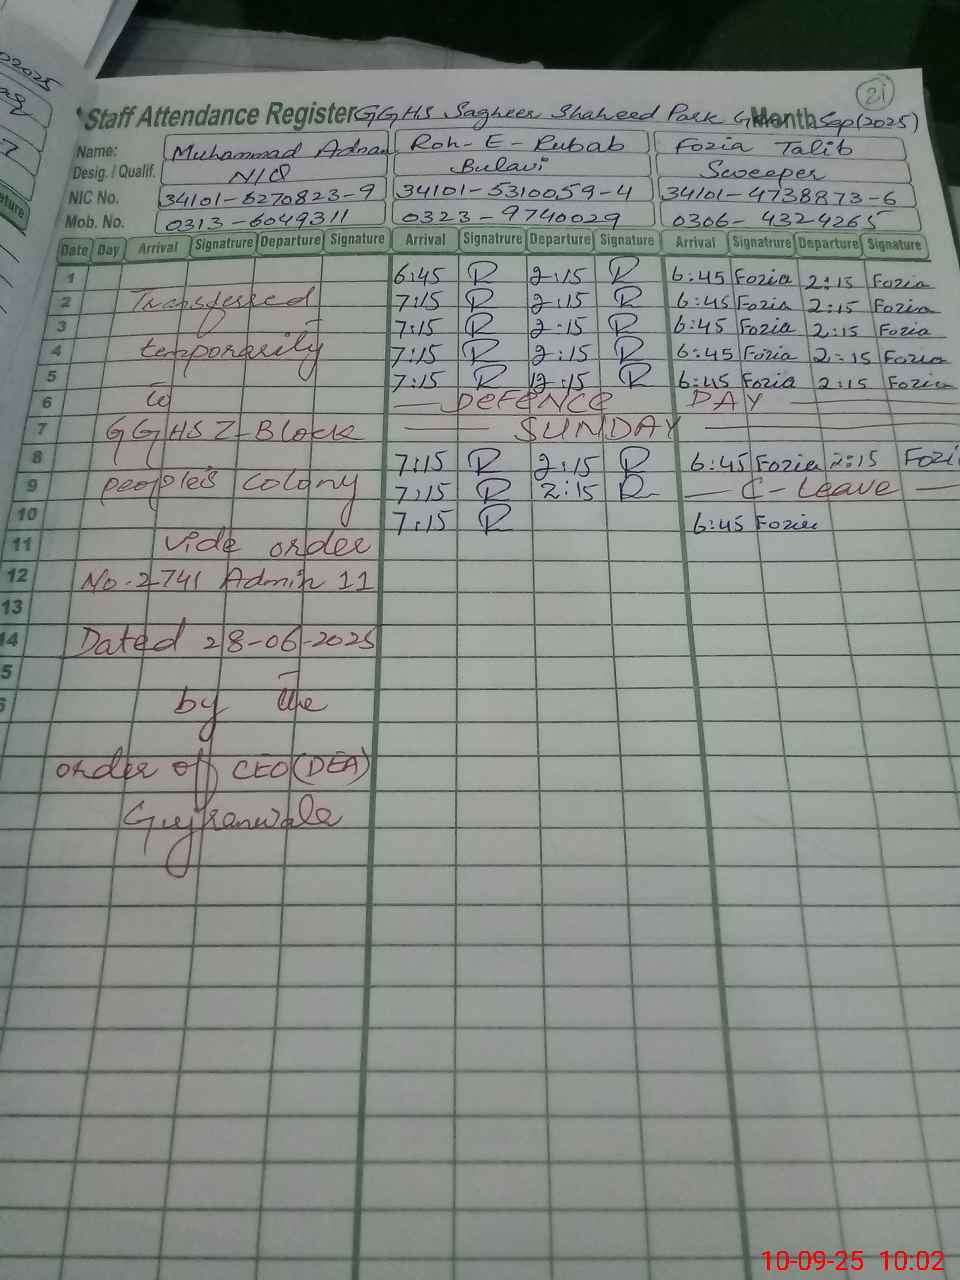 21
Staff Attendance Register GGHS Sagheer Shaheed Park G Month Sep(2025)
Name: Muhammad Adnan Roh-E-Rubab Fozia Talib
Desig. / Qualif. N/Q Bulavi Sweeper
NIC No. 34101-5270823-9 34101-5310059-4 34101-4738873-6
Mob. No. 0313-6049311 0323-9740029 0306-4324265
Date Day Arrival Signatrure Departure Signature Arrival Signatrure Departure Signature Arrival Signatrure Departure Signature
1 6:45 R 2:15 R 6:45 Fozia 2:15 Fozia
2 Transferred 7:15 R 2:15 R 6:45 Fozia 2:15 Fozia
3 7:15 R 2:15 R 6:45 Fozia 2:15 Fozia
4 temporarily 7:15 R 2:15 R 6:45 Fozia 2:15 Fozia
5 7:15 R 2:15 R 6:45 Fozia 2:15 Fozia
6 to — DEFENCE DAY —
7 GGHS Z-Block — SUNDAY —
8 7:15 R 2:15 R 6:45 Fozia 2:15 Fozi
9 people's colony 7:15 R 2:15 R — C-Leave —
10 7:15 R 6:45 Fozia
11 vide order
12 No-2741 Admin 11
13
14 Dated 28-06-2025
5
by the
order of CEO(DEA)
Gujranwala
10-09-25 10:02